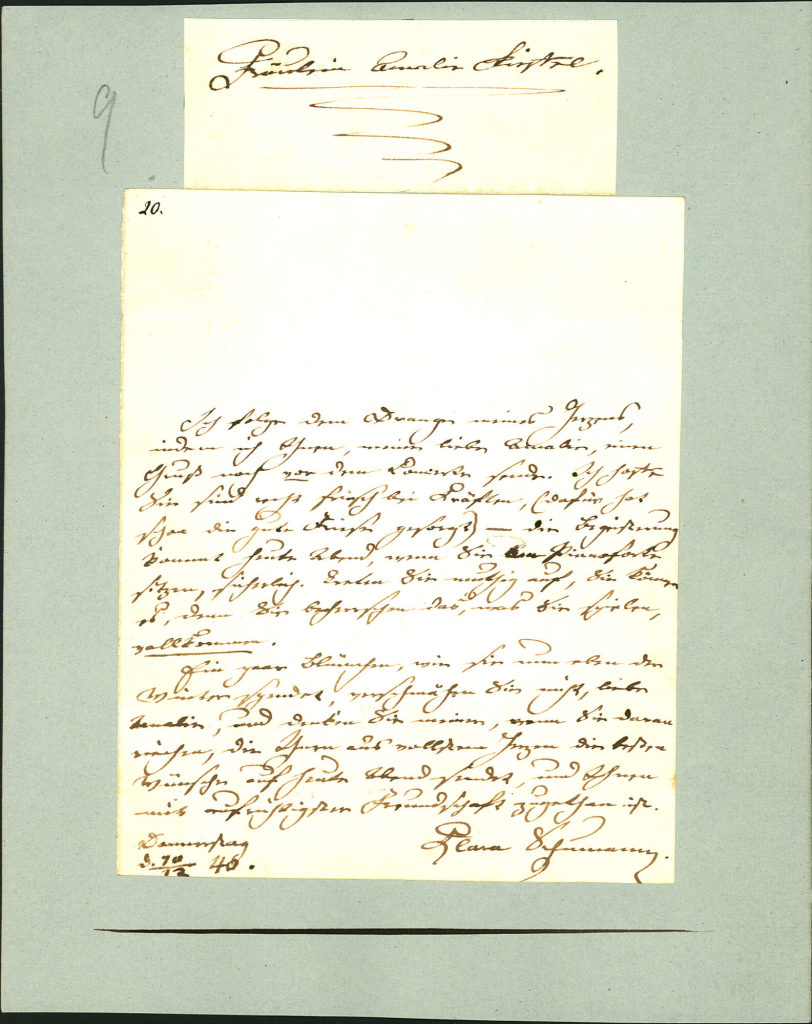 Fräulein Amalie Rieffel.
9
20.
Ich folge dem Drange meines Herzens,
indem ich Ihnen, meine liebe Amalie, einen
Gruß noch vor dem Concerte sende. Ich hoffe
Sie sind recht frisch bei Kräften, (dafür hat
schon die gute Friese gesorgt) — die Begeisterung
kommt heute Abend, wenn Sie am Pianoforte
sitzen, sicherlich. Treten Sie muthig auf, Sie können
es, denn Sie beherrschen das, was Sie spielen,
vollkommen.
Ein paar Blümchen, wie sie nun eben der
Winter spendet, verschmähen Sie nicht, liebe
Amalie, und denken Sie meiner, wenn Sie daran
riechen, die Ihnen aus vollstem Herzen die besten
Wünsche auf heute Abend sendet, und Ihnen
mit aufrichtigster Freundschaft zugethan ist.
Donnerstag
d. 10/12 40.
Clara Schumann.